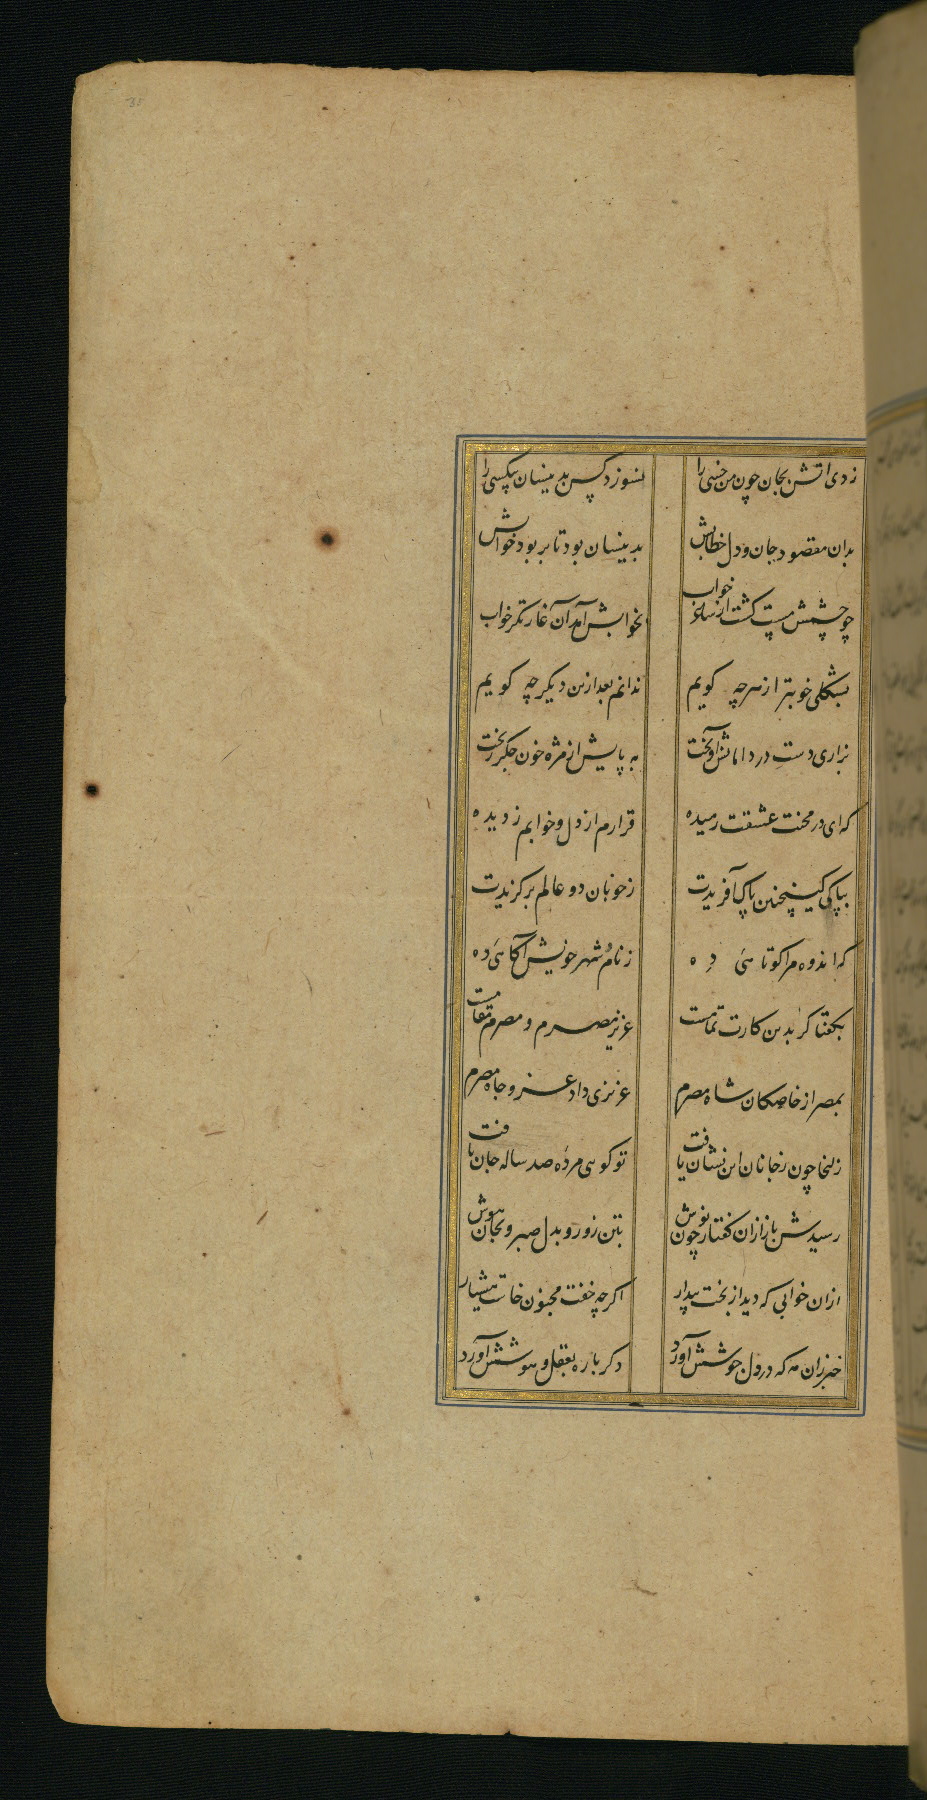 زدی اتش بجان چون من خسی را نسوزد کس بدینسان بیکسی را
بدان مقصود جان و دل خطابش بدینسان بود تا بربود خوابش
چو چشمش مست گشت از ساغر خواب بخوابش آمد آن غارتگر خواب
بشکلی خوبتر از هرچه گویم ندانم بعد ازین دیگر چه گویم
بزاری دست در دامانش آویخت به پایش از مژه خون جگر ریخت
که ای در محنت عشقت رمیده قرارم از دل و خوابم ز دیده
بپاکی کینچنین پاک آفریدت ز خوبان دو عالم برگزیدت
که اندوه مرا کوتاهئ ده ز نام و شهر خویش آگاهئ ده
بگفتا گر بدین کارت تمامست عزیز مصرم و مصرم مقامست
بمصر از خاصگان شاه مصرم عزیزی داد عز و جاه مصرم
زلیخا چون ز جانان این نشان یافت تو گویی مردهٔ صد ساله جان یافت
رسیدش باز ازان گفتار چون نوش بتن زور و بدل صبر و بجان هوش
ازان خوابی که دید از بخت بیدار اگرچه خفت مجنون خاست هشیار
خبر زان مه که در دل جوشش آورد دگرباره بعقل و هوشش آورد